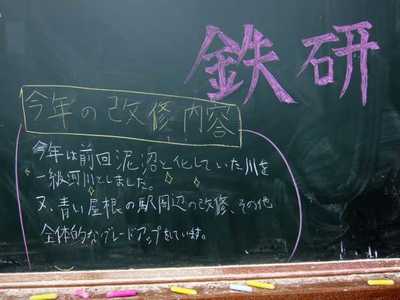 鉄研
今年の改修内容
今年は前回泥沼と化していた川を
一級河川としました。
又、青い屋根の駅周辺の改修、その他
全体的なグレードアップをしています。